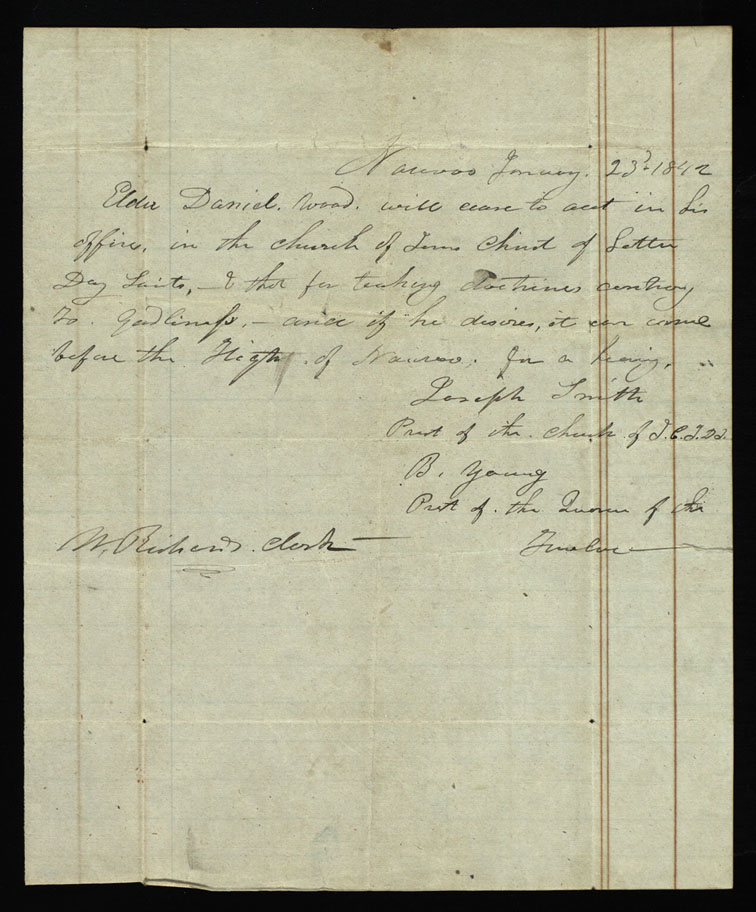 Nauvoo January. 23d. 1842
Elder Daniel. Wood. will cease to act in his
office, in the church of Jesus Christ of Latter
Day Saints, — & that for teaching doctrines contrary
to. Godliness. — and if he desires, it can come
before the High of Nauvoo, for a hearing.
Joseph Smith
Prest of the church of J. C. L. D. S.
B. Young
Prest of. the Quorum of the
Twelve
W. Richards. clerk